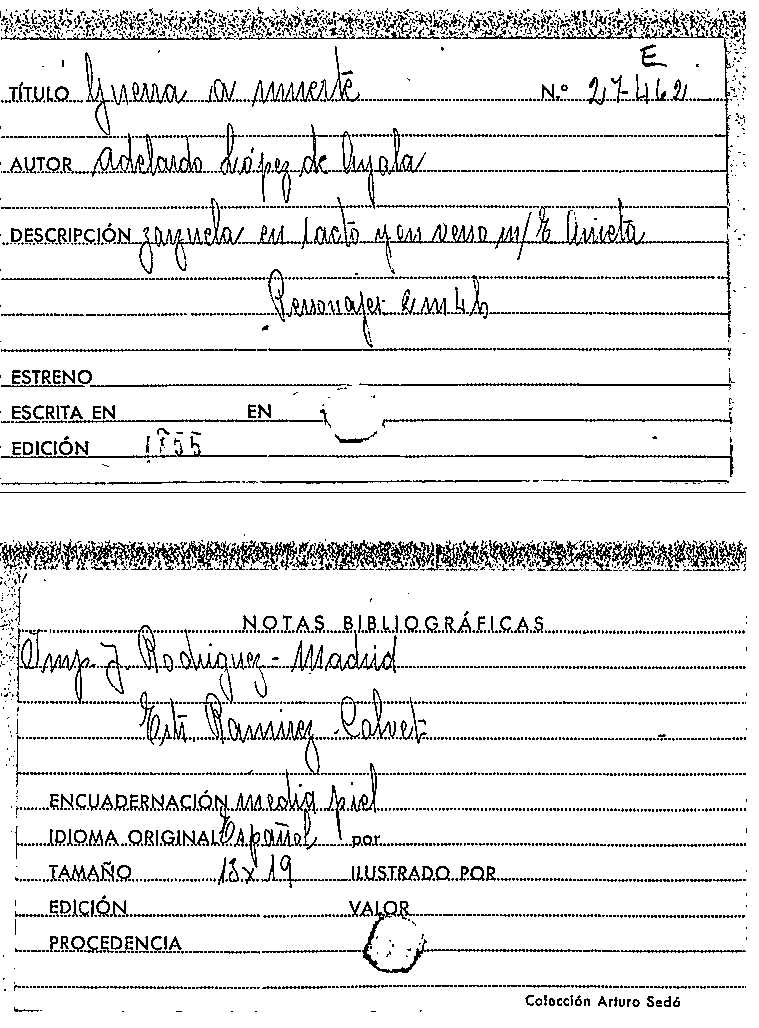 E
TÍTULO Guerra a muerte N.º 27-462
AUTOR Adelardo López de Ayala
DESCRIPCIÓN zarzuela en 1 acto y en verso m/ E Arrieta
Personajes 2 m 4 h
ESTRENO
ESCRITA EN EN
EDICIÓN 1855
NOTAS BIBLIOGRÁFICAS
Imp. J. Rodriguez - Madrid
Estr. Ramirez - Calvet
ENCUADERNACIÓN media piel
IDIOMA ORIGINAL Español por
TAMAÑO 13 x 19 ILUSTRADO POR
EDICIÓN VALOR
PROCEDENCIA
Colección Arturo Sedó